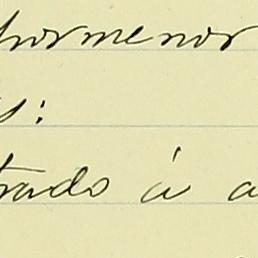 pormenor
s:
trado à a